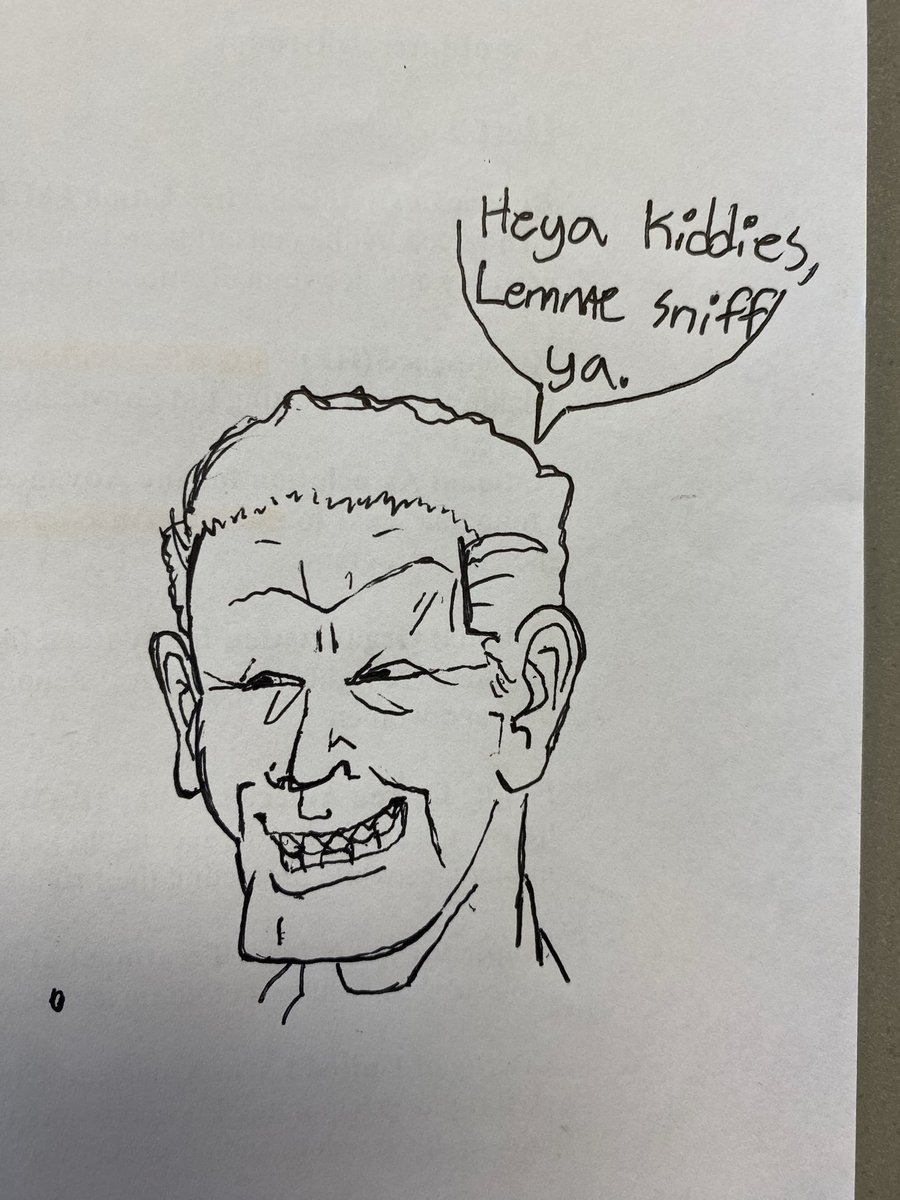 Heya Kiddies,
Lemme sniff
ya.